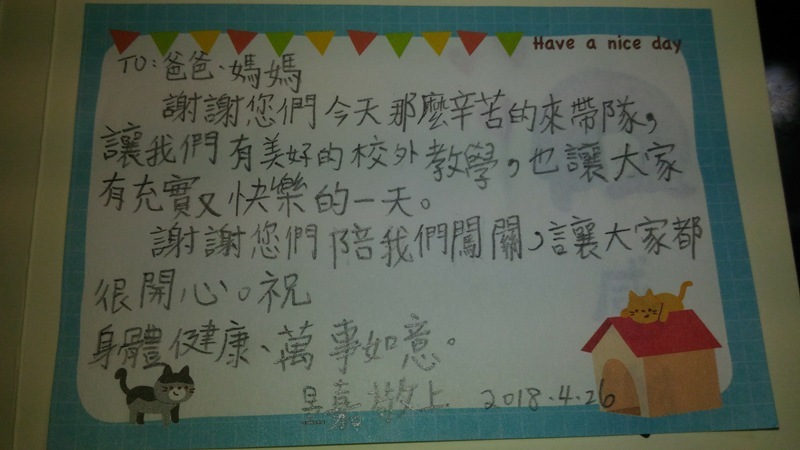 Have a nice day
TO:爸爸、媽媽
謝謝您們今天那麼辛苦的來帶隊,
讓我們有美好的校外教學,也讓大家
有充實又快樂的一天。
謝謝您們陪我們闖關,讓大家都
很開心。祝
身體健康、萬事如意。
嘉敬上 2018.4.26